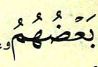 بَعْضُهُمُ